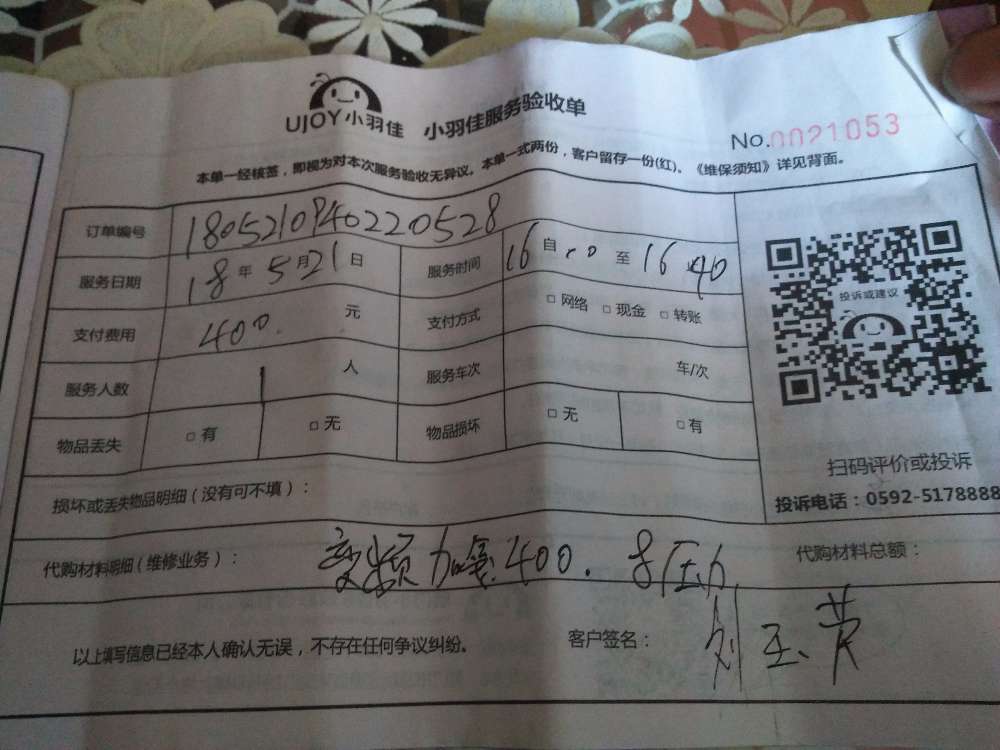 UJOY小羽佳 小羽佳服务验收单
No.0021053
本单一经核签，即视为对本次服务验收无异议。本单一式两份，客户留存一份(红)、《维保须知》详见背面。
订单编号 1805210940220528
服务日期 18年5月21日 服务时间 16自00至16 40
支付费用 400.元 支付方式 □网络 □现金 □转账
服务人数 1人 服务车次 车/次
物品丢失 □有 □无 物品损坏 □无 □有
投诉或建议
扫码评价或投诉
投诉电话：0592-5178888
损坏或丢失物品明细（没有可不填）：
代购材料明细（维修业务）： 变频加氟400. 8压力 代购材料总额：
以上填写信息已经本人确认无误，不存在任何争议纠纷。 客户签名： 刘玉